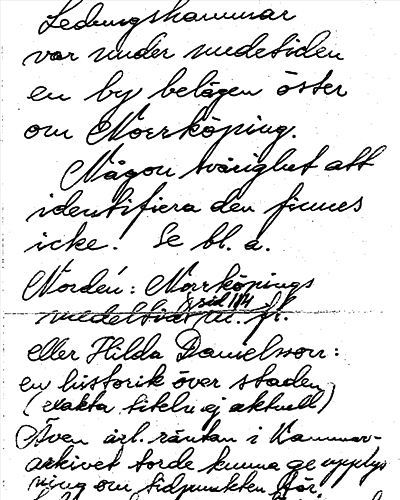 Ledungshammar
var under medeltiden
en by belägen öster
om Norrköping.
Någon svårighet att
identifiera den finnes
icke. Se bl. a.
Nordén: Norrköpings
sid 114
medeltid m. fl.
eller Hilda Danielsson:
en historik över staden
(exakta titeln ej aktuell)
Även årl. räntan i Kammar-
arkivet torde kunna ge upplys
ning om tidpunkten för